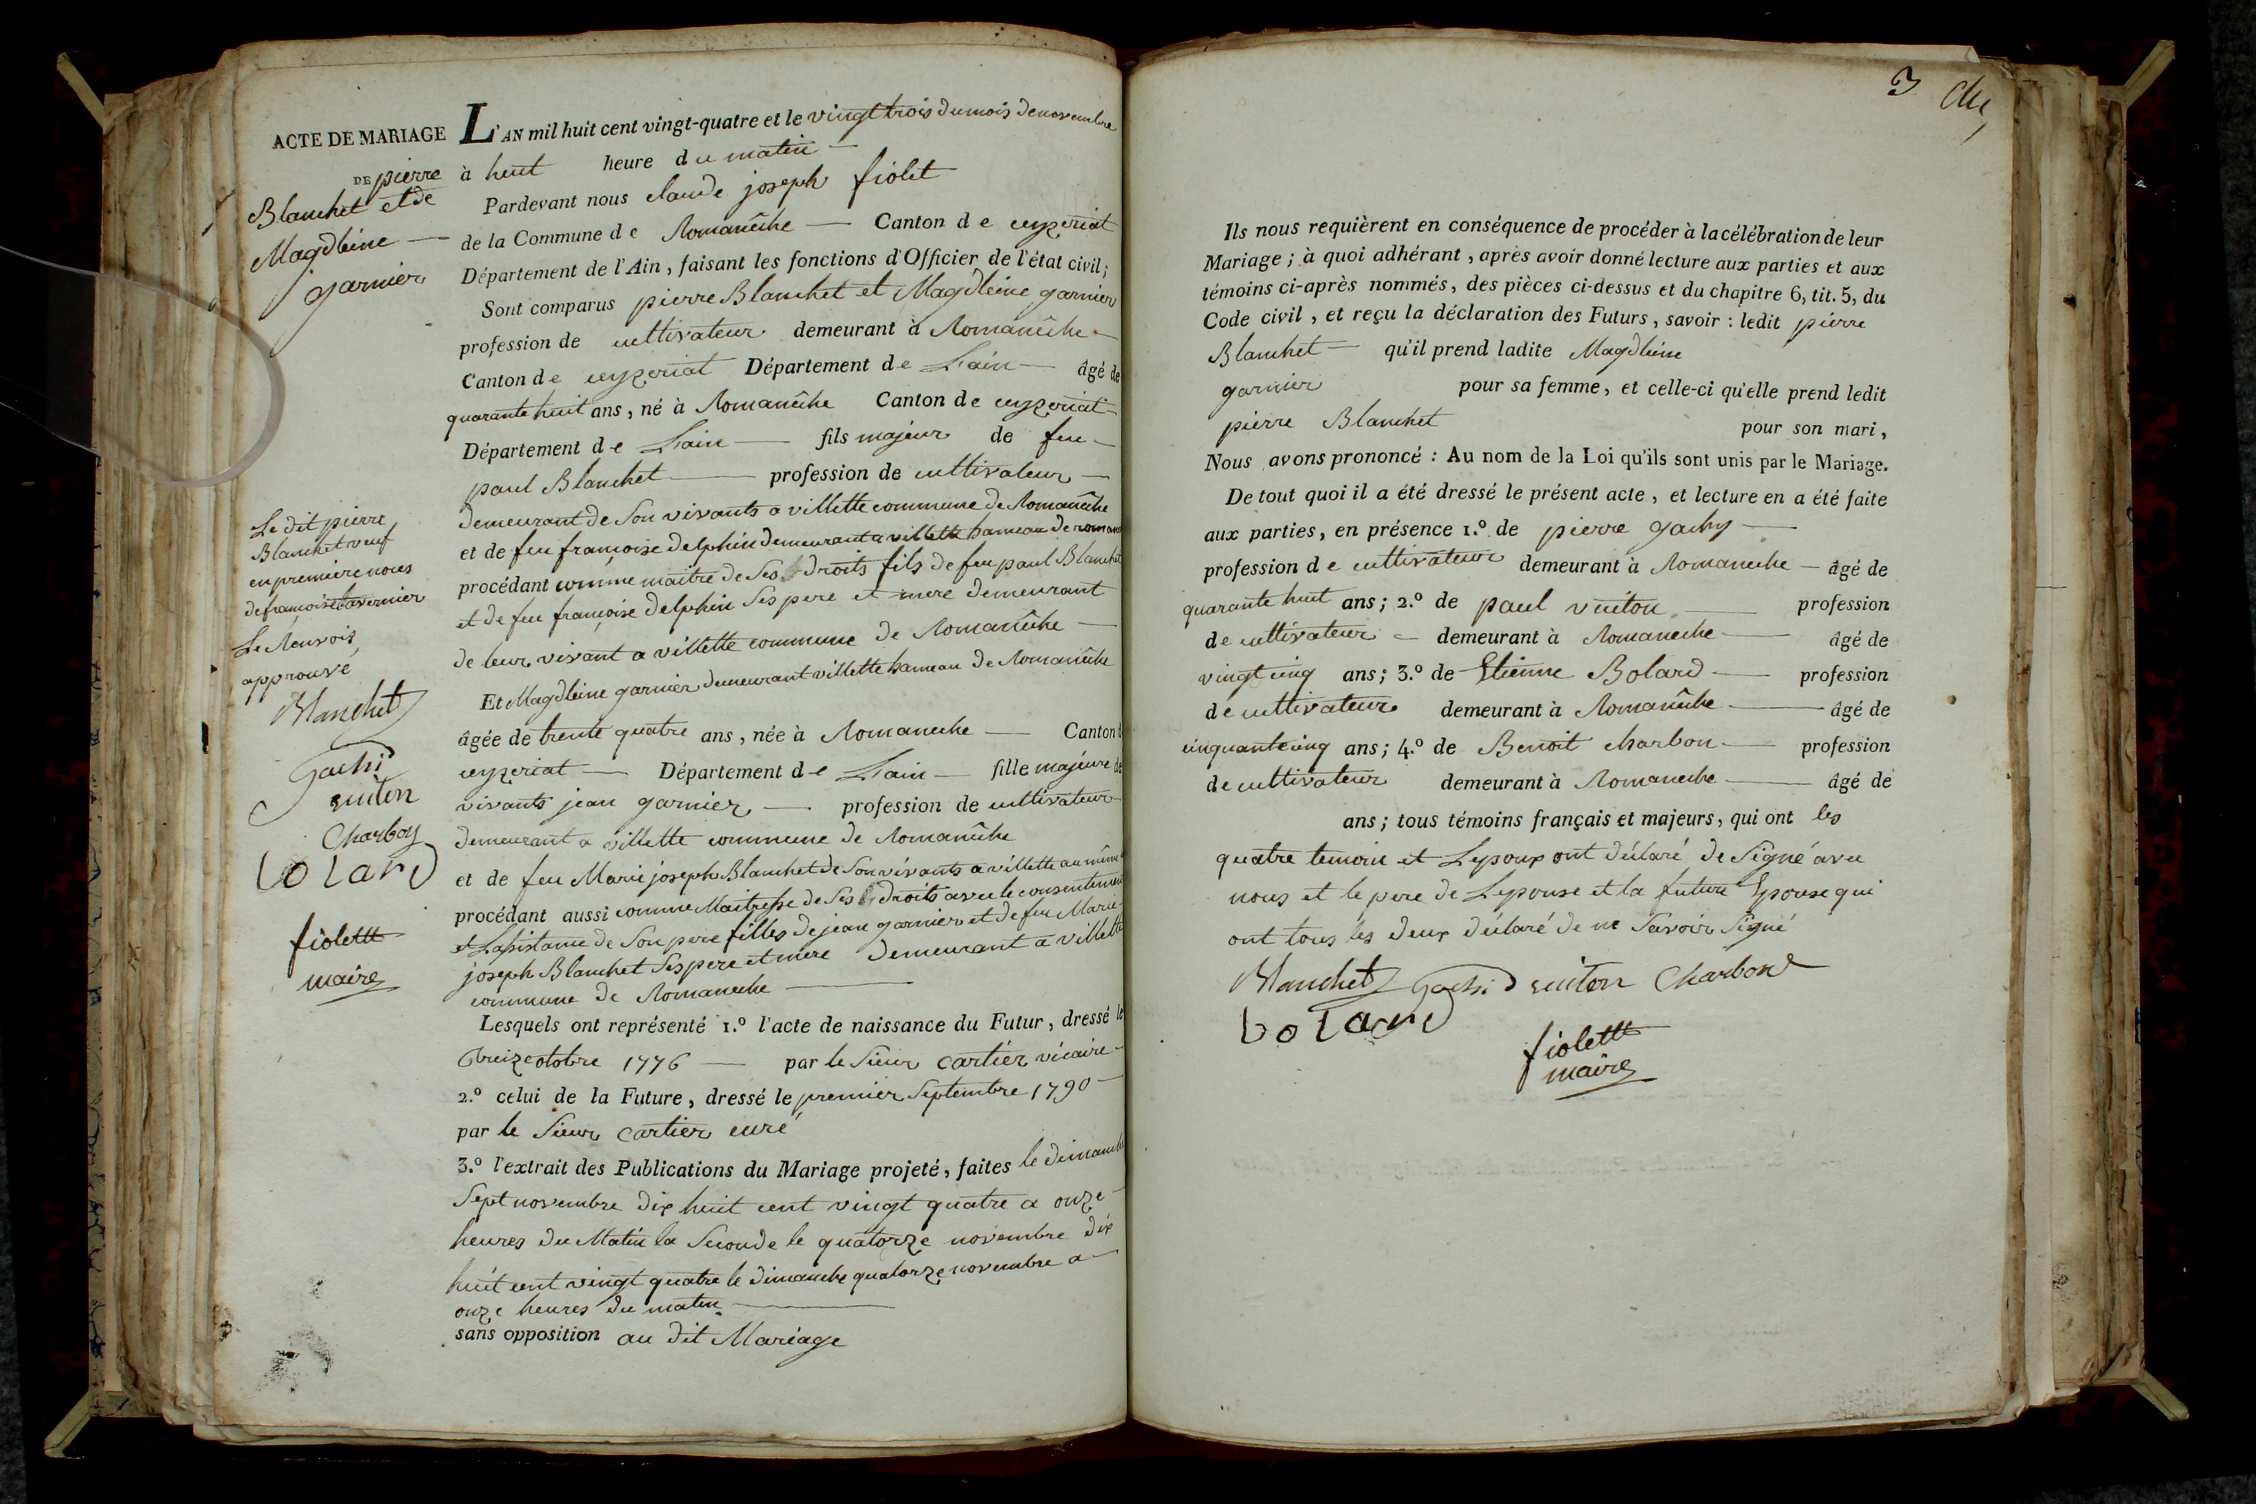 ACTE DE MARIAGE
DE pierre
Blanchet et de
Magdleine
garnier
L'AN mil huit cent vingt-quatre et le vingt trois du mois de novembre
à huit heure du matin
Pardevant nous claude joseph fiolet
de la Commune de Romanêche Canton de ceyzeriat
Département de l'Ain, faisant les fonctions d'Officier de l'état civil;
Sont comparus pierre Blanchet et Magdleine garnier
profession de cultivateur demeurant à Romanêche
Canton de ceyzeriat Département de Lain âgé de
quarante huit ans, né à Romanêche Canton de ceyzeriat
Département de Lain fils majeur de feu
paul Blanchet profession de cultivateur
demeurant de Son vivants a villette commune de Romanêche
et de feu françoise delphin demeurant a villette hameau de roman
procédant comme maitre de Ses droits fils de feu paul Blanchet
et de feu françoise delphin Ses pere et mere demeurant
de leur vivant a villette commune de Romanêche
Et Magdleine garnier demeurant villette hameau de Romanêche
âgée de trente quatre ans, née à Romaneche Canton d
ceyzeriat Département de Lain fille majeure de
vivants jean garnier profession de cultivateur
demeurant a villette commune de Romanêche
et de feu Marie joseph Blanchet de Son vivants a villette au même
procédant aussi comme Maitresse de Ses droits avec le consentement
et Lassistance de Son pere filles de jean garnier et de feu Marie
joseph Blanchet Ses pere et mere demeurant a villette
commune de Romaneche
Lesquels ont représenté 1.º l'acte de naissance du Futur, dressé le
treize otobre 1776 par le Sieur cartier vicaire
2.º celui de la Future, dressé le premier Septembre 1790
par le Sieur cartier curé
3.º l'extrait des Publications du Mariage projeté, faites le dimanche
Sept novembre dix huit cent vingt quatre a onze
heures du Matin la Seconde le quatorze novembre dix
huit cent vingt quatre le dimanche quatorze novembre a
onze heures du matin
sans opposition au dit Mariage
Le dit pierre
Blanchet veuf
en premiere noces
de françoise tavernier
Le Renvois
approuvé
Blanchet
Gachi
vuiton
Charbon
bolard
fiolettt
maire
3
Ils nous requièrent en conséquence de procéder à la célébration de leur
Mariage; à quoi adhérant, après avoir donné lecture aux parties et aux
témoins ci-après nommés, des pièces ci-dessus et du chapitre 6, tit. 5, du
Code civil, et reçu la déclaration des Futurs, savoir: ledit pierre
Blanchet qu'il prend ladite Magdleine
garnier pour sa femme, et celle-ci qu'elle prend ledit
pierre Blanchet pour son mari,
Nous avons prononcé: Au nom de la Loi qu'ils sont unis par le Mariage.
De tout quoi il a été dressé le présent acte, et lecture en a été faite
aux parties, en présence 1.º de pierre gachy
profession de cultivateur demeurant à Romaneche âgé de
quarante huit ans; 2.º de paul vuiton profession
de cultivateur demeurant à Romaneche âgé de
vingt cinq ans; 3.º de Etienne Bolard profession
de cultivateur demeurant à Romanêche âgé de
cinquante cinq ans; 4.º de Benoit charbon profession
de cultivateur demeurant à Romaneche âgé de
ans; tous témoins français et majeurs, qui ont les
quatre temoin et Lepoux ont déclaré de Signé avec
nous et le pere de Lepouse et la future Epouse qui
ont tous les deux déclaré de ne Savoir Signé
Blanchet Gachi vuiton Charbon
bolard
fiolettt
maire